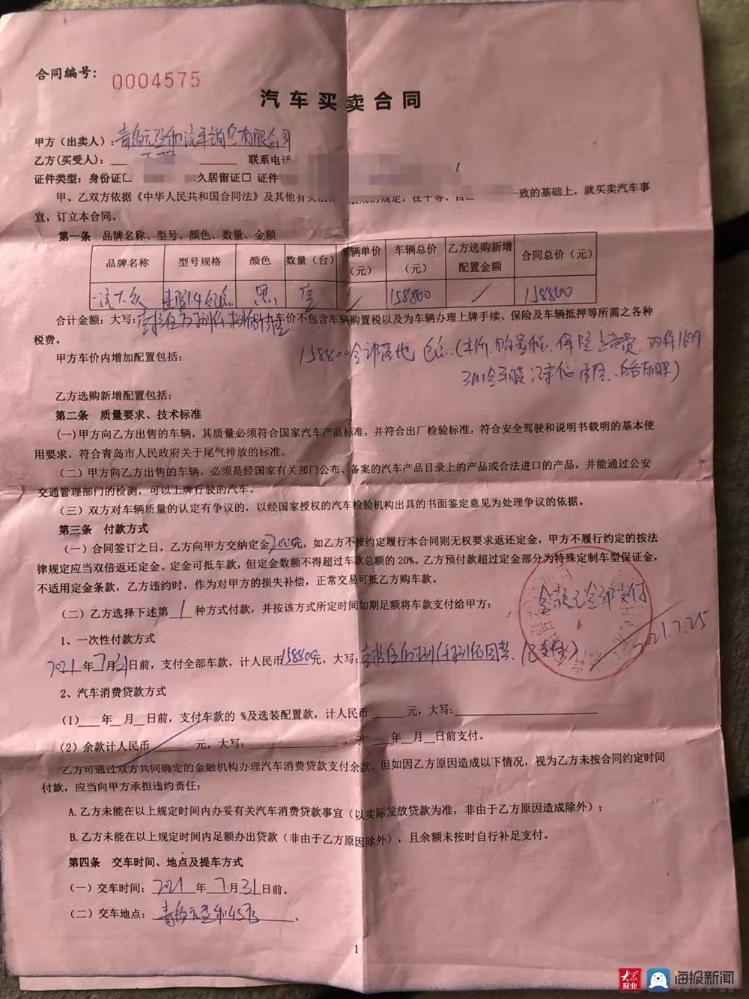 合同编号: 0004575
汽车买卖合同
甲方（出卖人）: 青岛元圣和汽车销售有限公司
乙方(买受人): 联系电话
证件类型: 身份证□ 久居留证□ 证件
甲、乙双方依据《中华人民共和国合同法》及其他有 的规定，在平等、 一致的基础上，就买卖汽车事
宜，订立本合同。
第一条 品牌名称、型号、颜色、数量、金额
品牌名称 型号规格 颜色 数量（台） 车辆单价（元） 车辆总价（元） 乙方选购新增配置金额 合同总价（元）
一汽大众 黑 壹 / 158800 / 158800
合计金额: 大写: 车价不包含车辆购置税以及为车辆办理上牌手续、保险及车辆抵押等所需之各种
税费。
甲方车价内增加配置包括: 158800 落地 包 (车价 购置税 保险
3M全车膜
乙方选购新增配置包括:
第二条 质量要求、技术标准
(一) 甲方向乙方出售的车辆，其质量必须符合国家汽车产品标准，并符合出厂检验标准，符合安全驾驶和说明书载明的基本使
用要求，符合青岛市人民政府关于尾气排放的标准。
（二）甲方向乙方出售的车辆，必须是经国家有关部门公布、备案的汽车产品目录上的产品或合法进口的产品，并能通过公安
交通管理部门的检测，可以上牌行驶的汽车。
（三）双方对车辆质量的认定有争议的，以经国家授权的汽车检验机构出具的书面鉴定意见为处理争议的依据。
第三条 付款方式
（一）合同签订之日，乙方向甲方交纳定金2000元，如乙方不按约定履行本合同则无权要求返还定金，甲方不履行约定的按法
律规定应当双倍返还定金。定金可抵车款，但定金数额不得超过车款总额的20%。乙方预付款超过定金部分为特殊定制车型保证金，
不适用定金条款，乙方违约时，作为对甲方的损失补偿，正常交易可抵乙方购车款。
（二）乙方选择下述第 1 种方式付款，并按该方式所定时间如期足额将车款支付给甲方:
全款已全部支付
2021.7.25
1、一次性付款方式
2021年7月31日前，支付全部车款，计人民币158800元，大写: (已支付)
2、汽车消费贷款方式
（1） 年 月 日前，支付车款的 %及选装配置款，计人民币 元，大写:
（2）余款计人民币 元，大写: ， 年 月 日前支付。
乙方可通过双方共同确定的金融机构办理汽车消费贷款支付余款，但如因乙方原因造成以下情况，视为乙方未按合同约定时间
付款，应当向甲方承担违约责任:
A. 乙方未能在以上规定时间内办妥有关汽车消费贷款事宜（以实际发放贷款为准，非由于乙方原因造成除外）;
B. 乙方未能在以上规定时间内足额办出贷款（非由于乙方原因除外），且余额未按时自行补足支付。
第四条 交车时间、地点及提车方式
（一）交车时间: 2021 年 7 月 31 日前。
（二）交车地点: 青岛元圣和4S店 。
1
大众报业 海报新闻